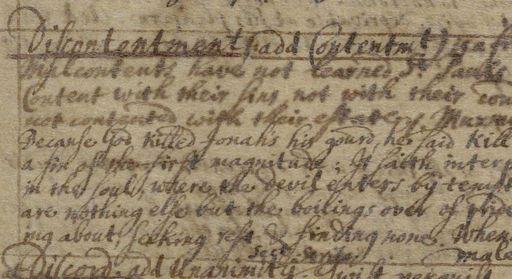 Discontentment (add Contentmt) is a fr
Mallcontents have not learned St Pauls
Content with their sins not with their con
not contented with their estates. Murmu
Because God killed Jonahs his gourd, he said Kill
a sin of the first magnitude; It saith inter
in the soul, where the Devil enters by tempt
are nothing else but the boilings over of pride
ing about, seeking rest & finding none. When
Discord. add Unanimity.